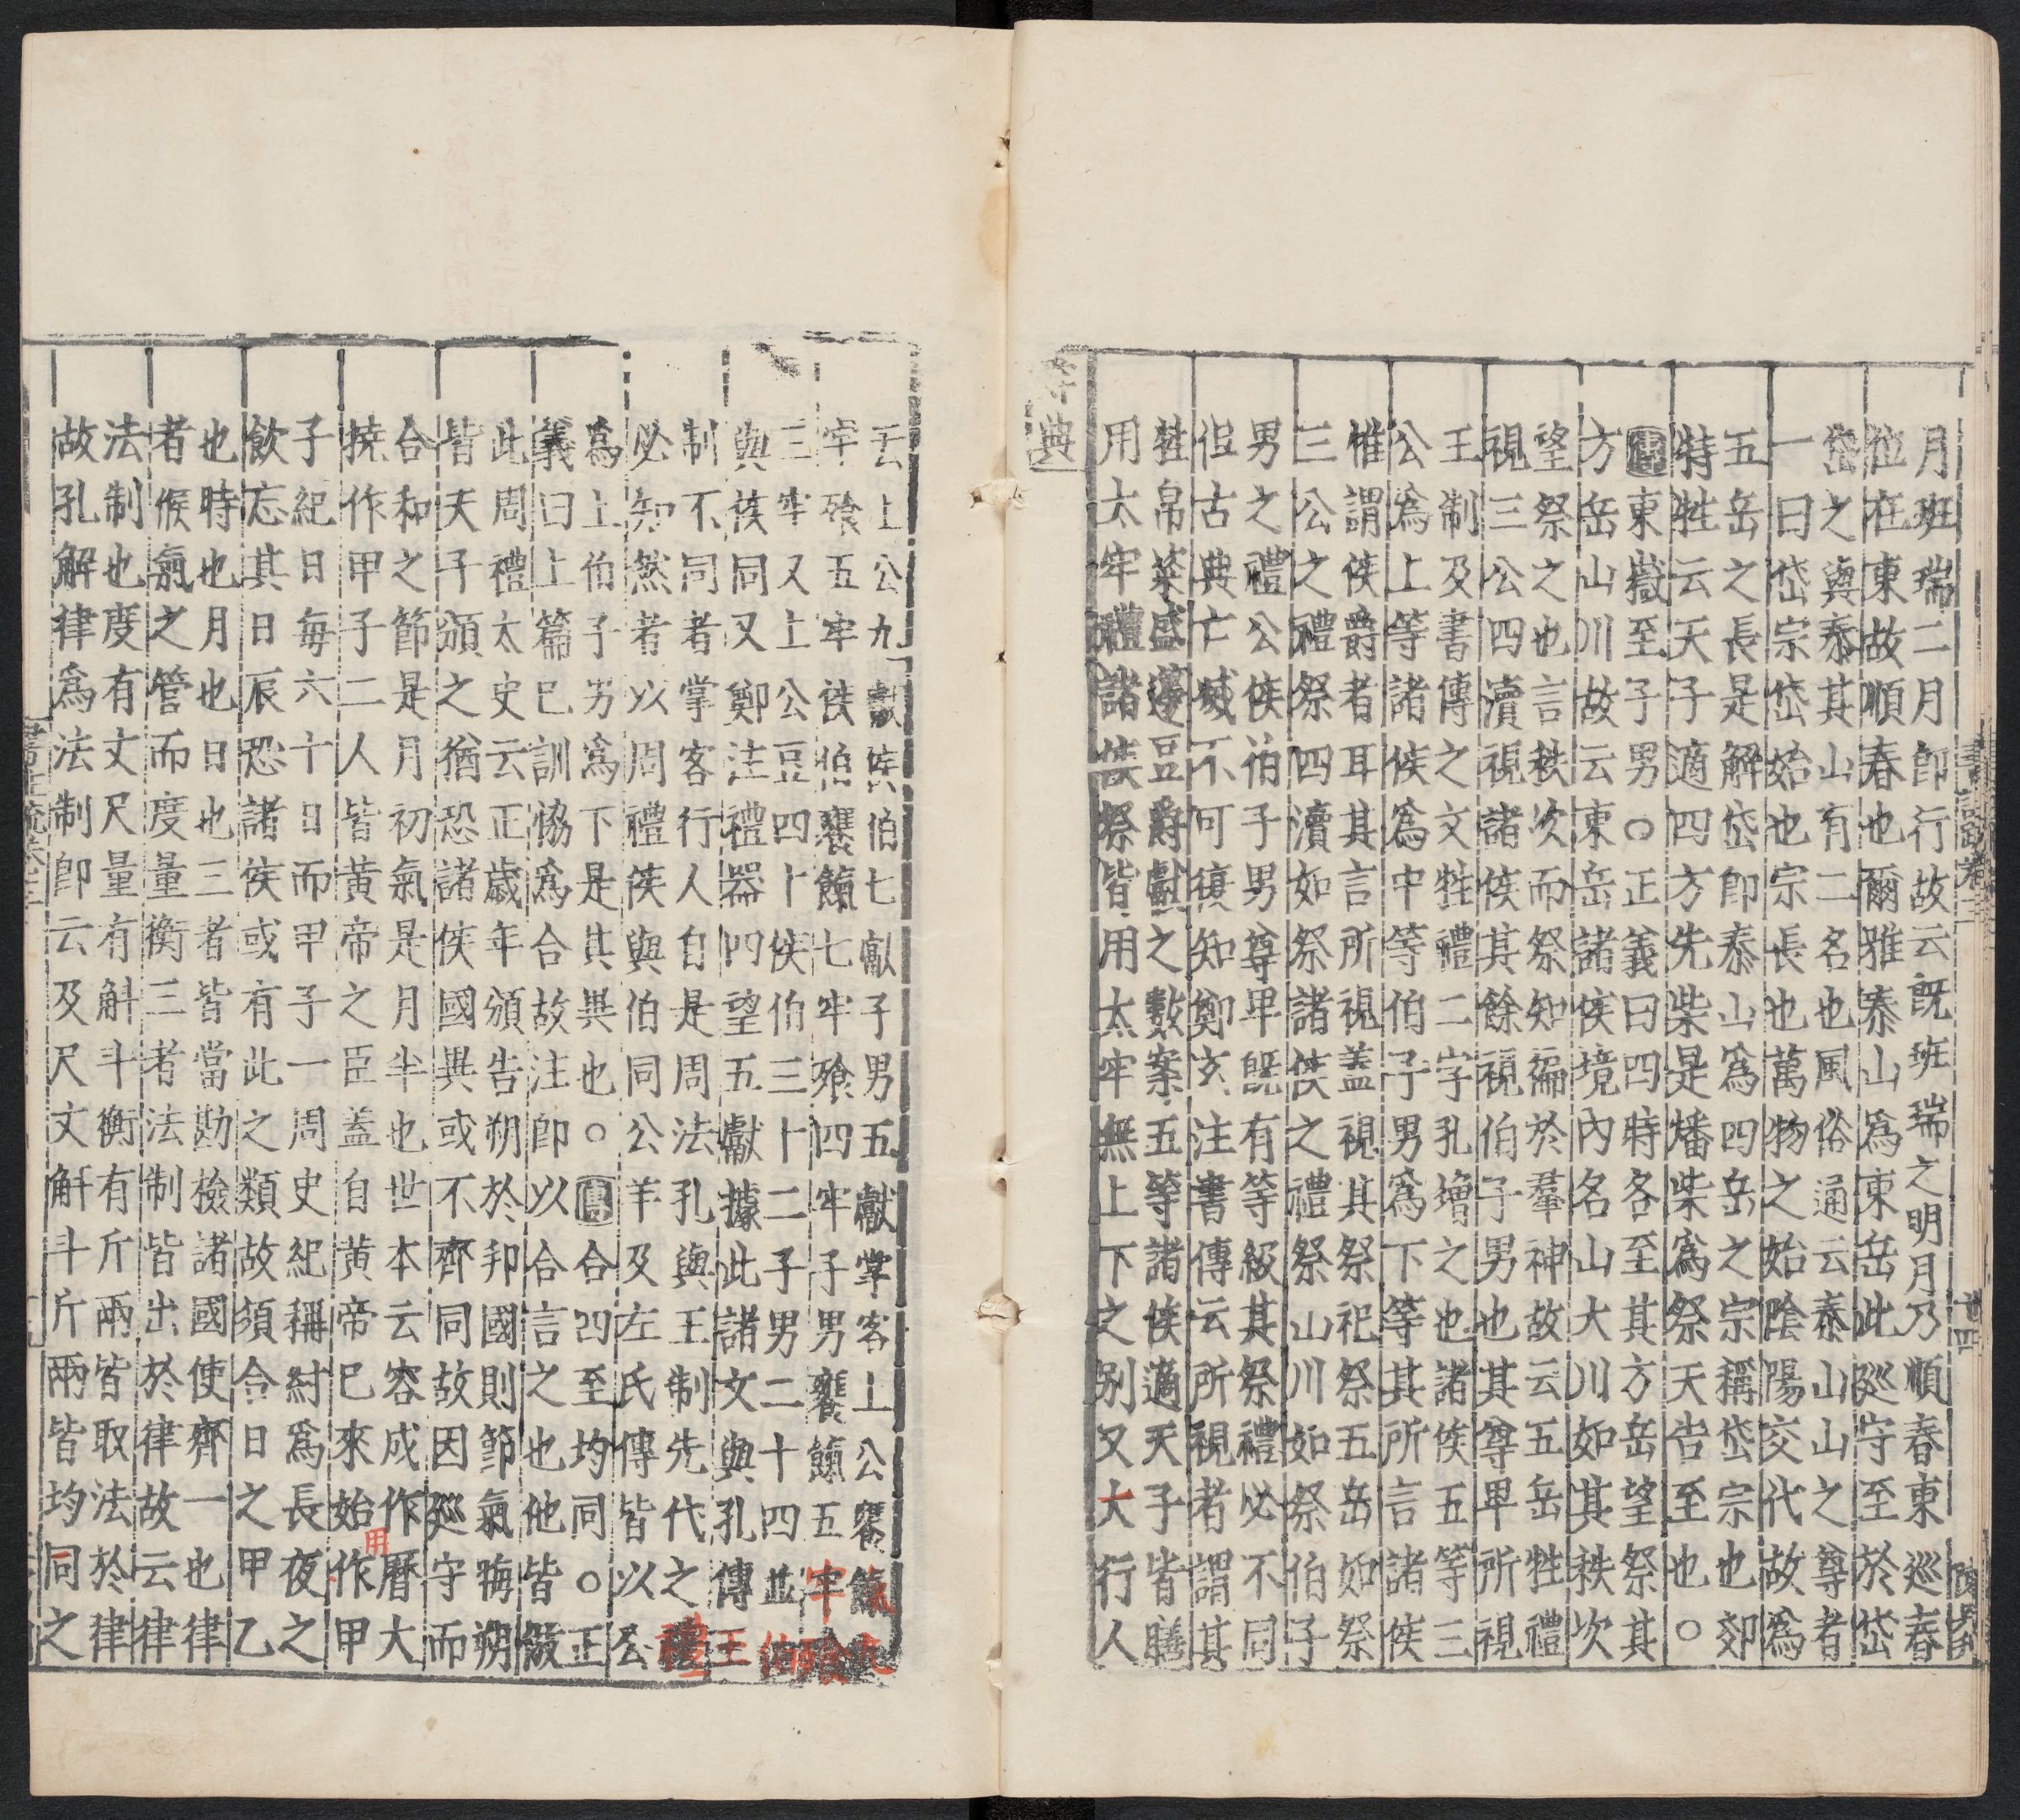 書註疏卷三
廿四
月班瑞二月即行故云旣班瑞之明月乃順春東巡春
位在東故順春也爾雅泰山爲東岳此廵守至於岱
岱之與泰其山有二名也風俗通云泰山山之尊者
一曰岱宗岱始也宗長也萬物之始陰陽交代故爲
五岳之長是解岱即泰山爲四岳之宗稱岱宗也郊
特牲云天子適四方先柴是燔柴爲祭天告至也○
傳東嶽至子男○正義曰四時各至其方岳望祭其
方岳山川故云東岳諸侯境內名山大川如其秩次
望祭之也言秩次而祭知徧於羣神故云五岳牲禮
視三公四瀆視諸侯其餘視伯子男也其尊卑所視
王制及書傳之文牲禮二字孔增之也諸侯五等三
公爲上等諸侯爲中等伯子男爲下等其所言諸侯
惟謂侯爵者耳其言所視蓋視其祭祀祭五岳如祭
三公之禮祭四瀆如祭諸侯之禮祭山川如祭伯子
男之禮公侯伯子男尊卑旣有等級其祭禮必不同
但古典亡滅不可復知鄭玄注書傳云所視者謂其
牲帛粢盛籩豆爵獻之數案五等諸侯適天子皆膳
用太牢禮諸侯祭皆用太牢無上下之别又大行人
典
云上公九獻侯伯七獻子男五獻掌客上公饔餼九
牢飱五牢侯伯饔餼七牢飱四牢子男饔餼五牢飱
三牢又上公豆四十侯伯三十二子男二十四並伯
與侯同又鄭注禮器四望五獻據此諸文與孔傳王
制不同者掌客行人自是周法孔與王制先代之禮
必知然者以周禮侯與伯同公羊及左氏傳皆以公
爲上伯子男爲下是其異也○傳合四至均同○正
義曰上篇已訓協爲合故注即以合言之也他皆倣
此周禮太史云正歲年頒告朔於邦國則節氣晦朔
皆天子頒之猶恐諸侯國異或不齊同故因廵守而
合和之節是月初氣是月半也世本云容成作曆大
撓作甲子二人皆黄帝之臣蓋自黄帝已來始用作甲
子紀日每六十日而甲子一周史紀稱紂爲長夜之
飲忘其日辰恐諸侯或有此之類故須合日之甲乙
也時也月也日也三者皆當勘檢諸國使齊一也律
者候氣之管而度量衡三者法制皆出於律故云律
法制也度有丈尺量有斛斗衡有斤兩皆取法於律
故孔解律爲法制即云及尺丈斛斗斤兩皆均同之